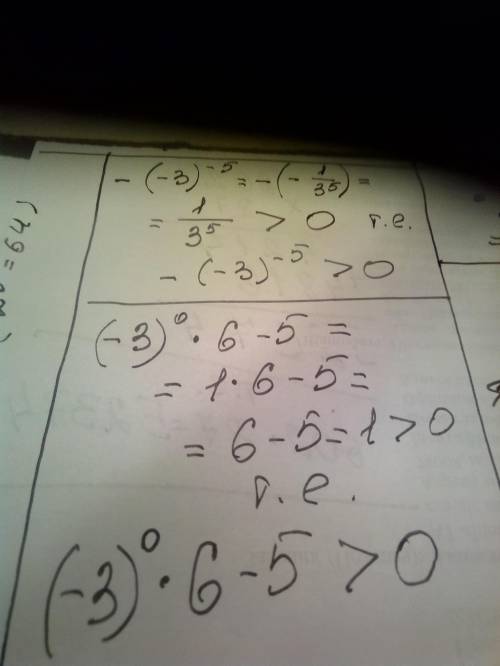 - (-3)^-5 = -(-1/3^5) =
= 1/3^5 > 0 т.е.
- (-3)^-5 > 0
(-3)^0 · 6 - 5 =
= 1 · 6 - 5 =
= 6 - 5 = 1 > 0
т.е.
(-3)^0 · 6 - 5 > 0